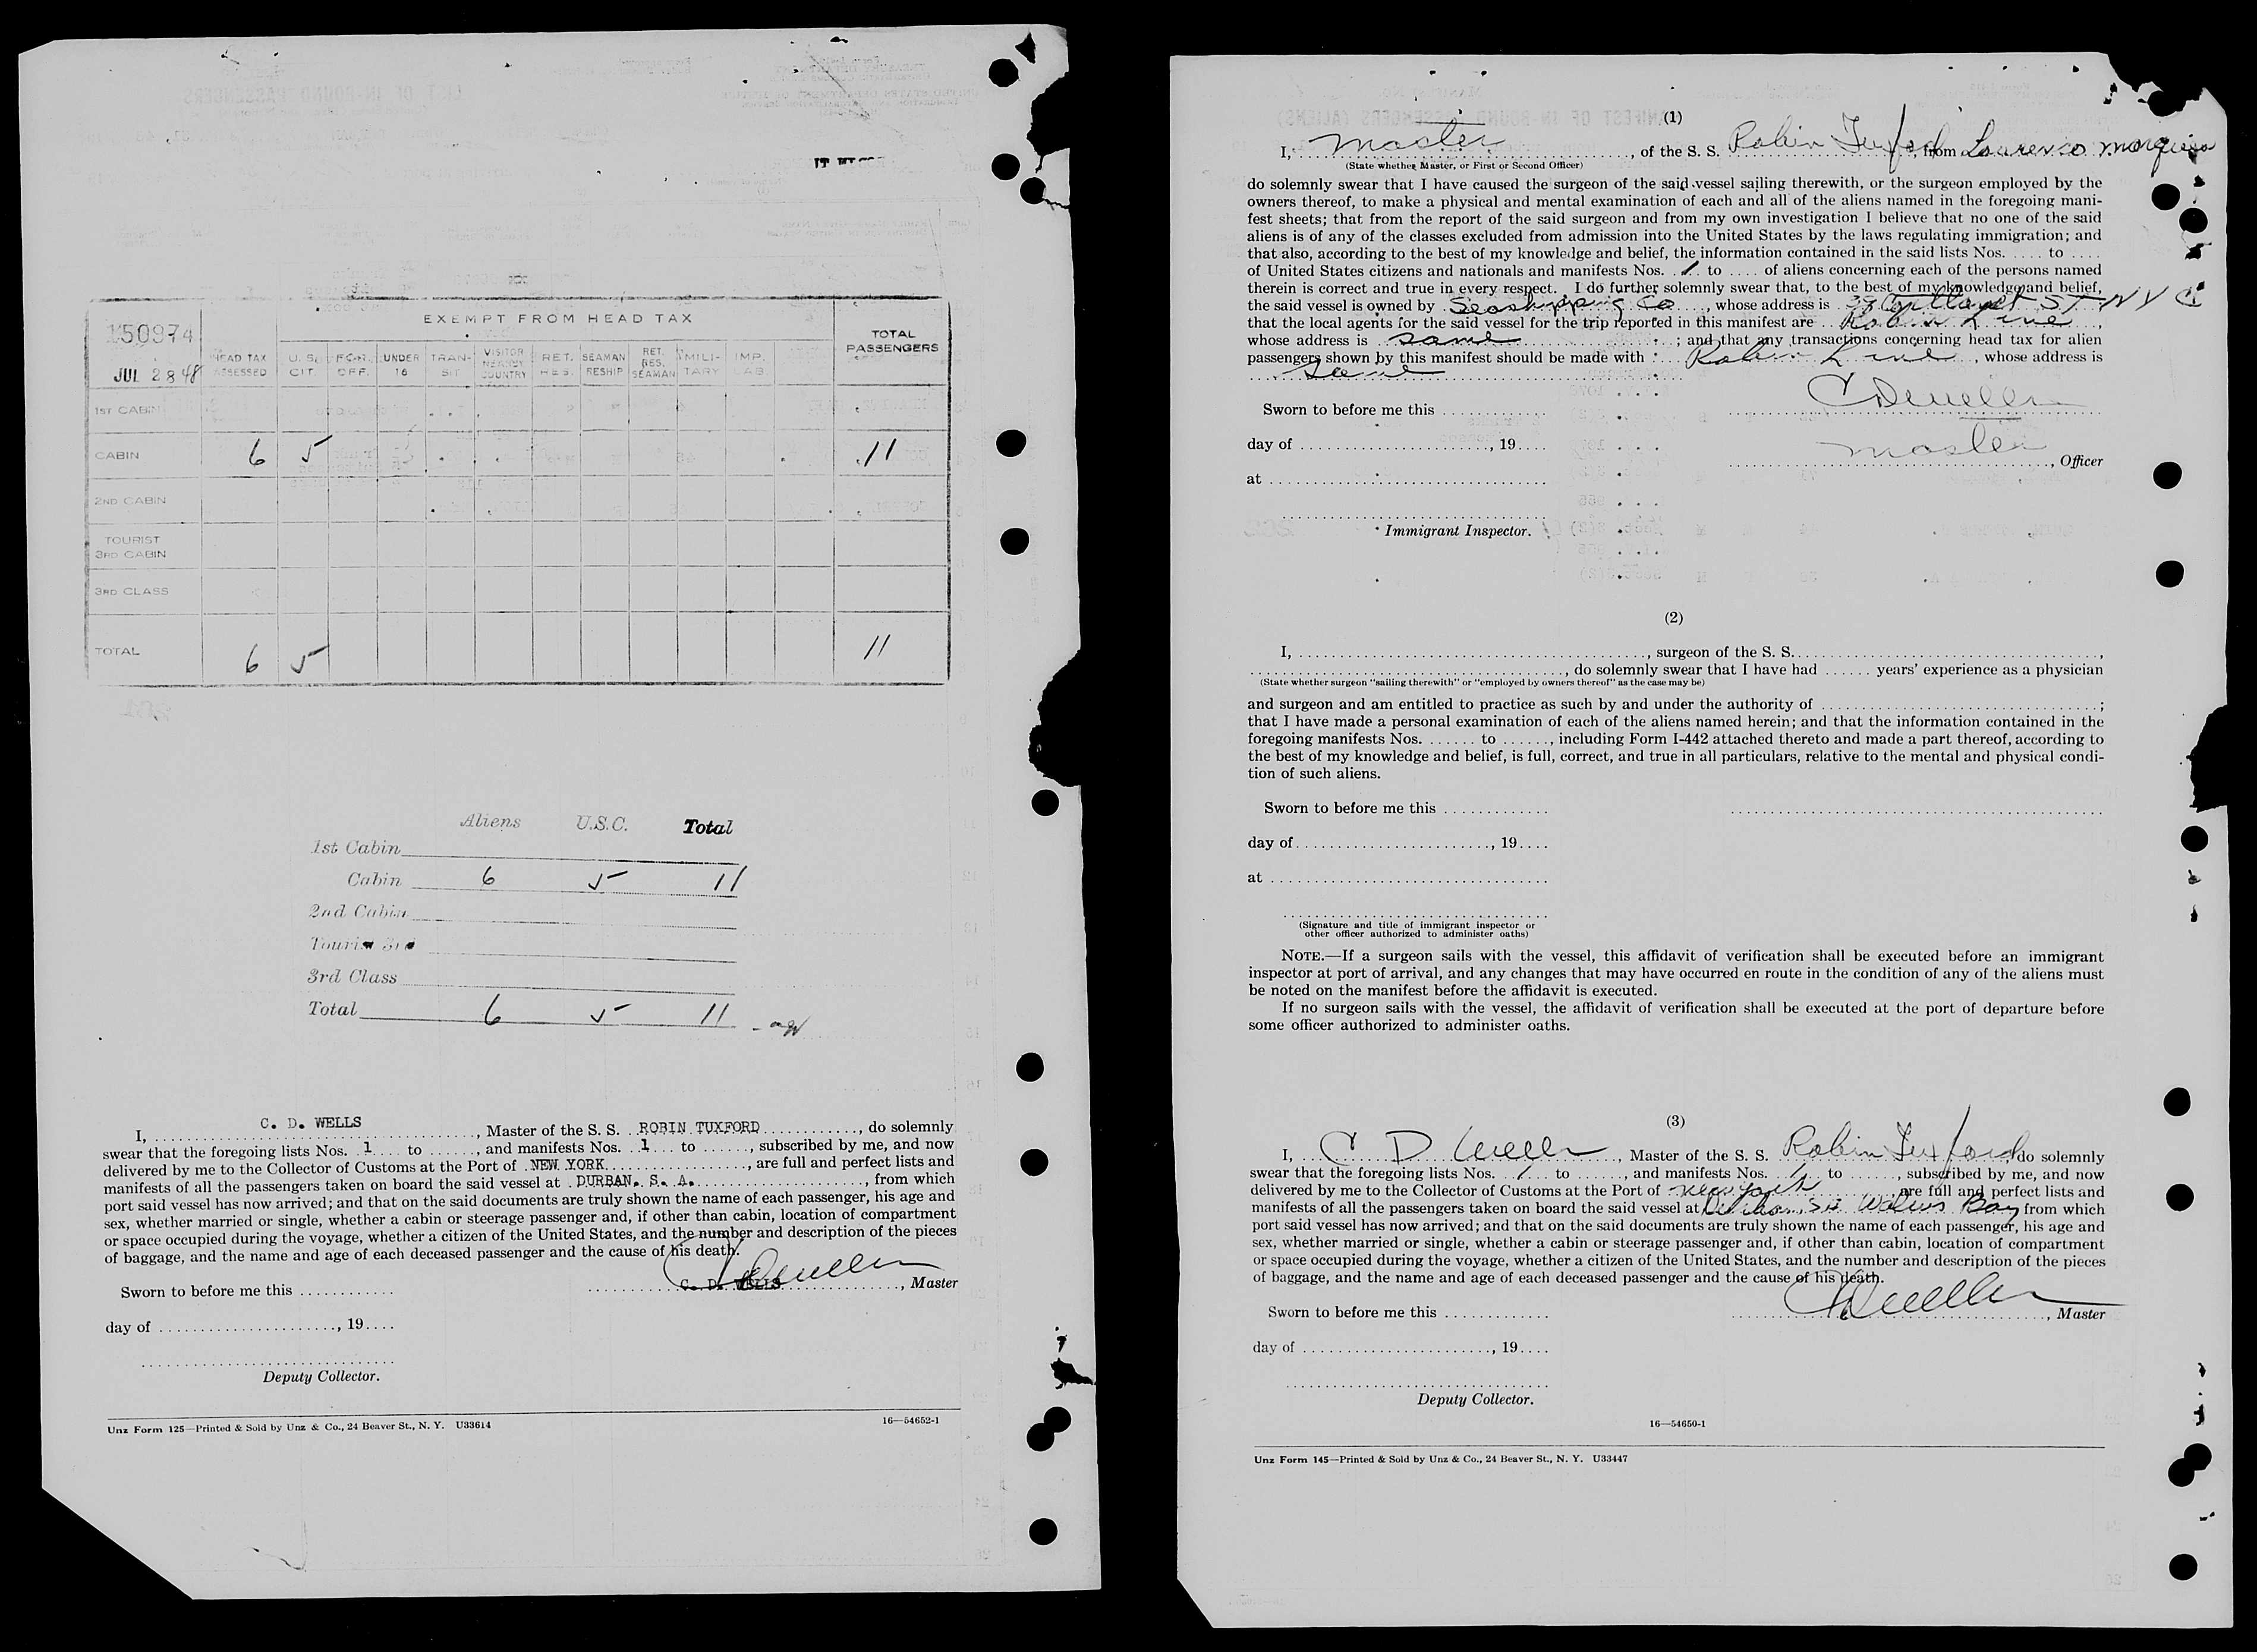 EXEMPT FROM HEAD TAX
150974
JUL 28 48
HEAD TAX ASSESSED
U. S. CIT.
FOR. OFF.
UNDER 16
TRAN- SIT
VISITOR COUNTRY
RET. RES.
SEAMAN RESHIP
RET. RES. SEAMAN
MILI- TARY
IMP. LAB.
TOTAL PASSENGERS
1ST CABIN
CABIN 6 5 11
2ND CABIN
TOURIST 3RD CABIN
3RD CLASS
TOTAL 6 5 11
Aliens U.S.C. Total
1st Cabin
Cabin 6 5 11
2nd Cabin
Tourist 3rd
3rd Class
Total 6 5 11
I, C. D. WELLS, Master of the S. S. ROBIN TUXFORD, do solemnly
swear that the foregoing lists Nos. 1 to ......, and manifests Nos. 1 to ......, subscribed by me, and now
delivered by me to the Collector of Customs at the Port of NEW YORK, are full and perfect lists and
manifests of all the passengers taken on board the said vessel at DURBAN. S. A., from which
port said vessel has now arrived; and that on the said documents are truly shown the name of each passenger, his age and
sex, whether married or single, whether a cabin or steerage passenger and, if other than cabin, location of compartment
or space occupied during the voyage, whether a citizen of the United States, and the number and description of the pieces
of baggage, and the name and age of each deceased passenger and the cause of his death.
C. D. WELLS, Master
Sworn to before me this
day of ......, 19....
Deputy Collector.
Unz Form 125—Printed & Sold by Unz & Co., 24 Beaver St., N. Y. U33614
16—54652-1
(1)
I, Master, of the S. S. Robin Tuxford, from Lourenco Marques
(State whether Master, or First or Second Officer)
do solemnly swear that I have caused the surgeon of the said vessel sailing therewith, or the surgeon employed by the
owners thereof, to make a physical and mental examination of each and all of the aliens named in the foregoing mani-
fest sheets; that from the report of the said surgeon and from my own investigation I believe that no one of the said
aliens is of any of the classes excluded from admission into the United States by the laws regulating immigration; and
that also, according to the best of my knowledge and belief, the information contained in the said lists Nos. .... to ....
of United States citizens and nationals and manifests Nos. 1 to .... of aliens concerning each of the persons named
therein is correct and true in every respect. I do further solemnly swear that, to the best of my knowledge and belief,
the said vessel is owned by Seashipping Co, whose address is 39 Cortlandt St N Y C
that the local agents for the said vessel for the trip reported in this manifest are Robin Line,
whose address is same; and that any transactions concerning head tax for alien
passengers shown by this manifest should be made with Robin Line, whose address is
Same
C D Wells
Sworn to before me this
day of ......, 19....
Master, Officer
at
Immigrant Inspector.
(2)
I, ......, surgeon of the S. S. ......,
......, do solemnly swear that I have had ...... years' experience as a physician
(State whether surgeon "sailing therewith" or "employed by owners thereof" as the case may be)
and surgeon and am entitled to practice as such by and under the authority of ......;
that I have made a personal examination of each of the aliens named herein; and that the information contained in the
foregoing manifests Nos. ...... to ......, including Form I-442 attached thereto and made a part thereof, according to
the best of my knowledge and belief, is full, correct, and true in all particulars, relative to the mental and physical condi-
tion of such aliens.
Sworn to before me this
day of ......, 19....
at
(Signature and title of immigrant inspector or
other officer authorized to administer oaths)
NOTE.—If a surgeon sails with the vessel, this affidavit of verification shall be executed before an immigrant
inspector at port of arrival, and any changes that may have occurred en route in the condition of any of the aliens must
be noted on the manifest before the affidavit is executed.
If no surgeon sails with the vessel, the affidavit of verification shall be executed at the port of departure before
some officer authorized to administer oaths.
(3)
I, C D Wells, Master of the S. S. Robin Tuxford, do solemnly
swear that the foregoing lists Nos. 1 to ......, and manifests Nos. 1 to ......, subscribed by me, and now
delivered by me to the Collector of Customs at the Port of New York, are full and perfect lists and
manifests of all the passengers taken on board the said vessel at Durban, Walvis Bay from which
port said vessel has now arrived; and that on the said documents are truly shown the name of each passenger, his age and
sex, whether married or single, whether a cabin or steerage passenger and, if other than cabin, location of compartment
or space occupied during the voyage, whether a citizen of the United States, and the number and description of the pieces
of baggage, and the name and age of each deceased passenger and the cause of his death.
C D Wells, Master
Sworn to before me this
day of ......, 19....
Deputy Collector.
16—54650-1
Unz Form 145—Printed & Sold by Unz & Co., 24 Beaver St., N. Y. U33447